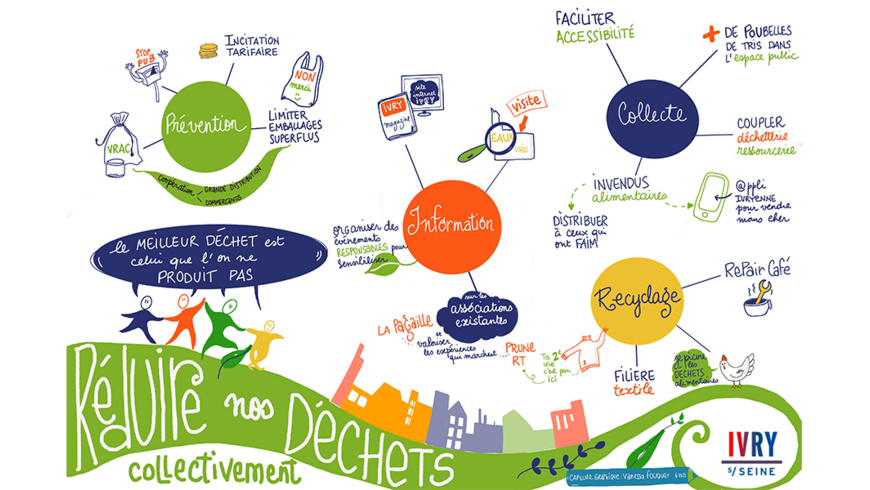 STOP
PUB
INCITATION
TARIFAIRE
NON
merci
Prévention
VRAC
LIMITER
EMBALLAGES
SUPERFLUS
COOPÉRATION
GRANDE DISTRIBUTION
COMMERCANTS
le MEILLEUR DÉCHET est
celui que l'on ne
PRODUIT PAS
IVRY
magazine
site
internet
IVRY
visite
EAUX
Information
ORGANISER des
événements
RESPONSABLES pour
sensibiliser
sur les
associations
existantes
LA PAGAILLE
et
valoriser
les expériences
qui marchent...
PRUNE
RT
FACILITER
ACCESSIBILITÉ
+ DE POUBELLES
DE TRIS DANS
L'espace public
Collecte
COUPLER
déchetterie
ressourcerie
INVENDUS
alimentaires
@ppli
IVRYENNE
pour vendre
moins cher
DISTRIBUER
à ceux qui
ont FAIM
Recyclage
RePair Café
Ta 2e
vie
c'est par
ici
FILIERE
textile
je picore
les
DECHETS
alimentaires
Réduire nos Déchets
collectivement
CAPTURE GRAPHIQUE Vanessa FOUQUET
IVRY
s/SEINE